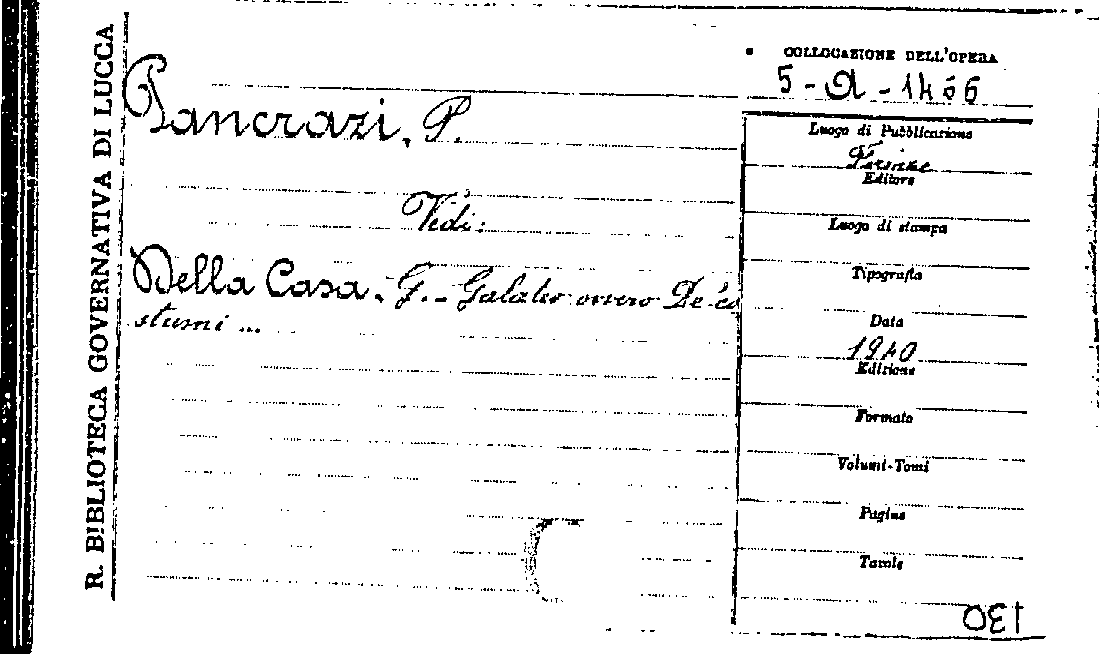 R. BIBLIOTECA GOVERNATIVA DI LUCCA
Pancrazi, P.
Vedi:
Della Casa, G. - Galateo ovvero De' co
stumi ...
COLLOCAZIONE DELL'OPERA
5 - A - 1466
Luogo di Pubblicazione
Firenze
Editore
Luogo di stampa
Tipografia
Data
1940
Edizione
Formato
Volumi-Tomi
Pagine
Tavole
130